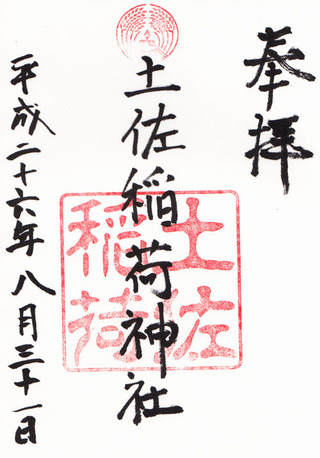 奉拝
土佐稲荷神社
土佐
稲荷
平成二十六年八月三十一日